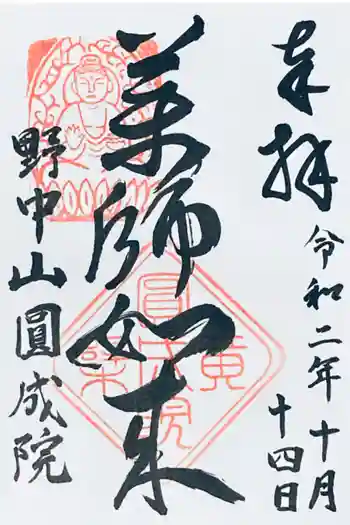 奉拝
令和二年十月
十四日
薬師如来
野中山圓成院